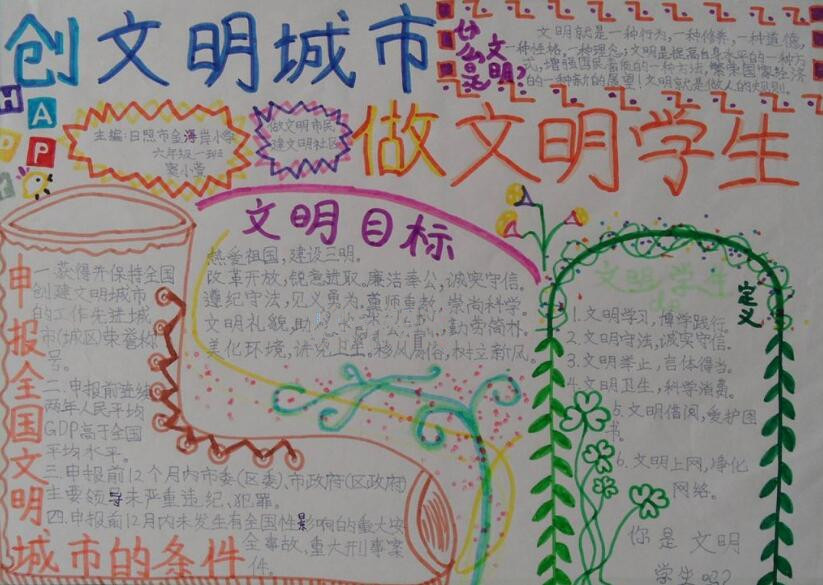 创文明城市
做文明学生
什么是
文明?
文明就是一种行为,一种修养,一种道德,
一种性格,一种理念;文明是提高自身水平的一种方
式,增强国民素质的一种方法,繁荣国家经济
的一种新的展望!文明就是做人的规则。
HAPPY
主编:日照市金海岸小学
六年级一班
窦小萱
做文明市民
建文明社区
文明目标
热爱祖国,建设三明。
改革开放,锐意进取。廉洁奉公,诚实守信。
遵纪守法,见义勇为。尊师重教,崇尚科学。
文明礼貌,助
,勤劳简朴。
美化环境,讲究卫生。移风易俗,树立新风。
申报全国文明
城市的条件
一.获得并保持全国
创建文明城市
的工作先进城
市(城区)荣誉称
号。
二.申报前连续
两年人民平均
GDP高于全国
平均水平。
三.申报前12个月内市委(区委)、市政府(区政府)
主要领导未严重违纪、犯罪。
四.申报前12月内未发生有全国性影响的重大安
全事故,重大刑事案
件。
文明学生
定义
1.文明学习,博学践行。
2.文明守法,诚实守信。
3.文明举止,言体得当。
4.文明卫生,科学消费。
5.文明借阅,爱护图
书。
6.文明上网,净化
网络。
你是文明
学生吗?